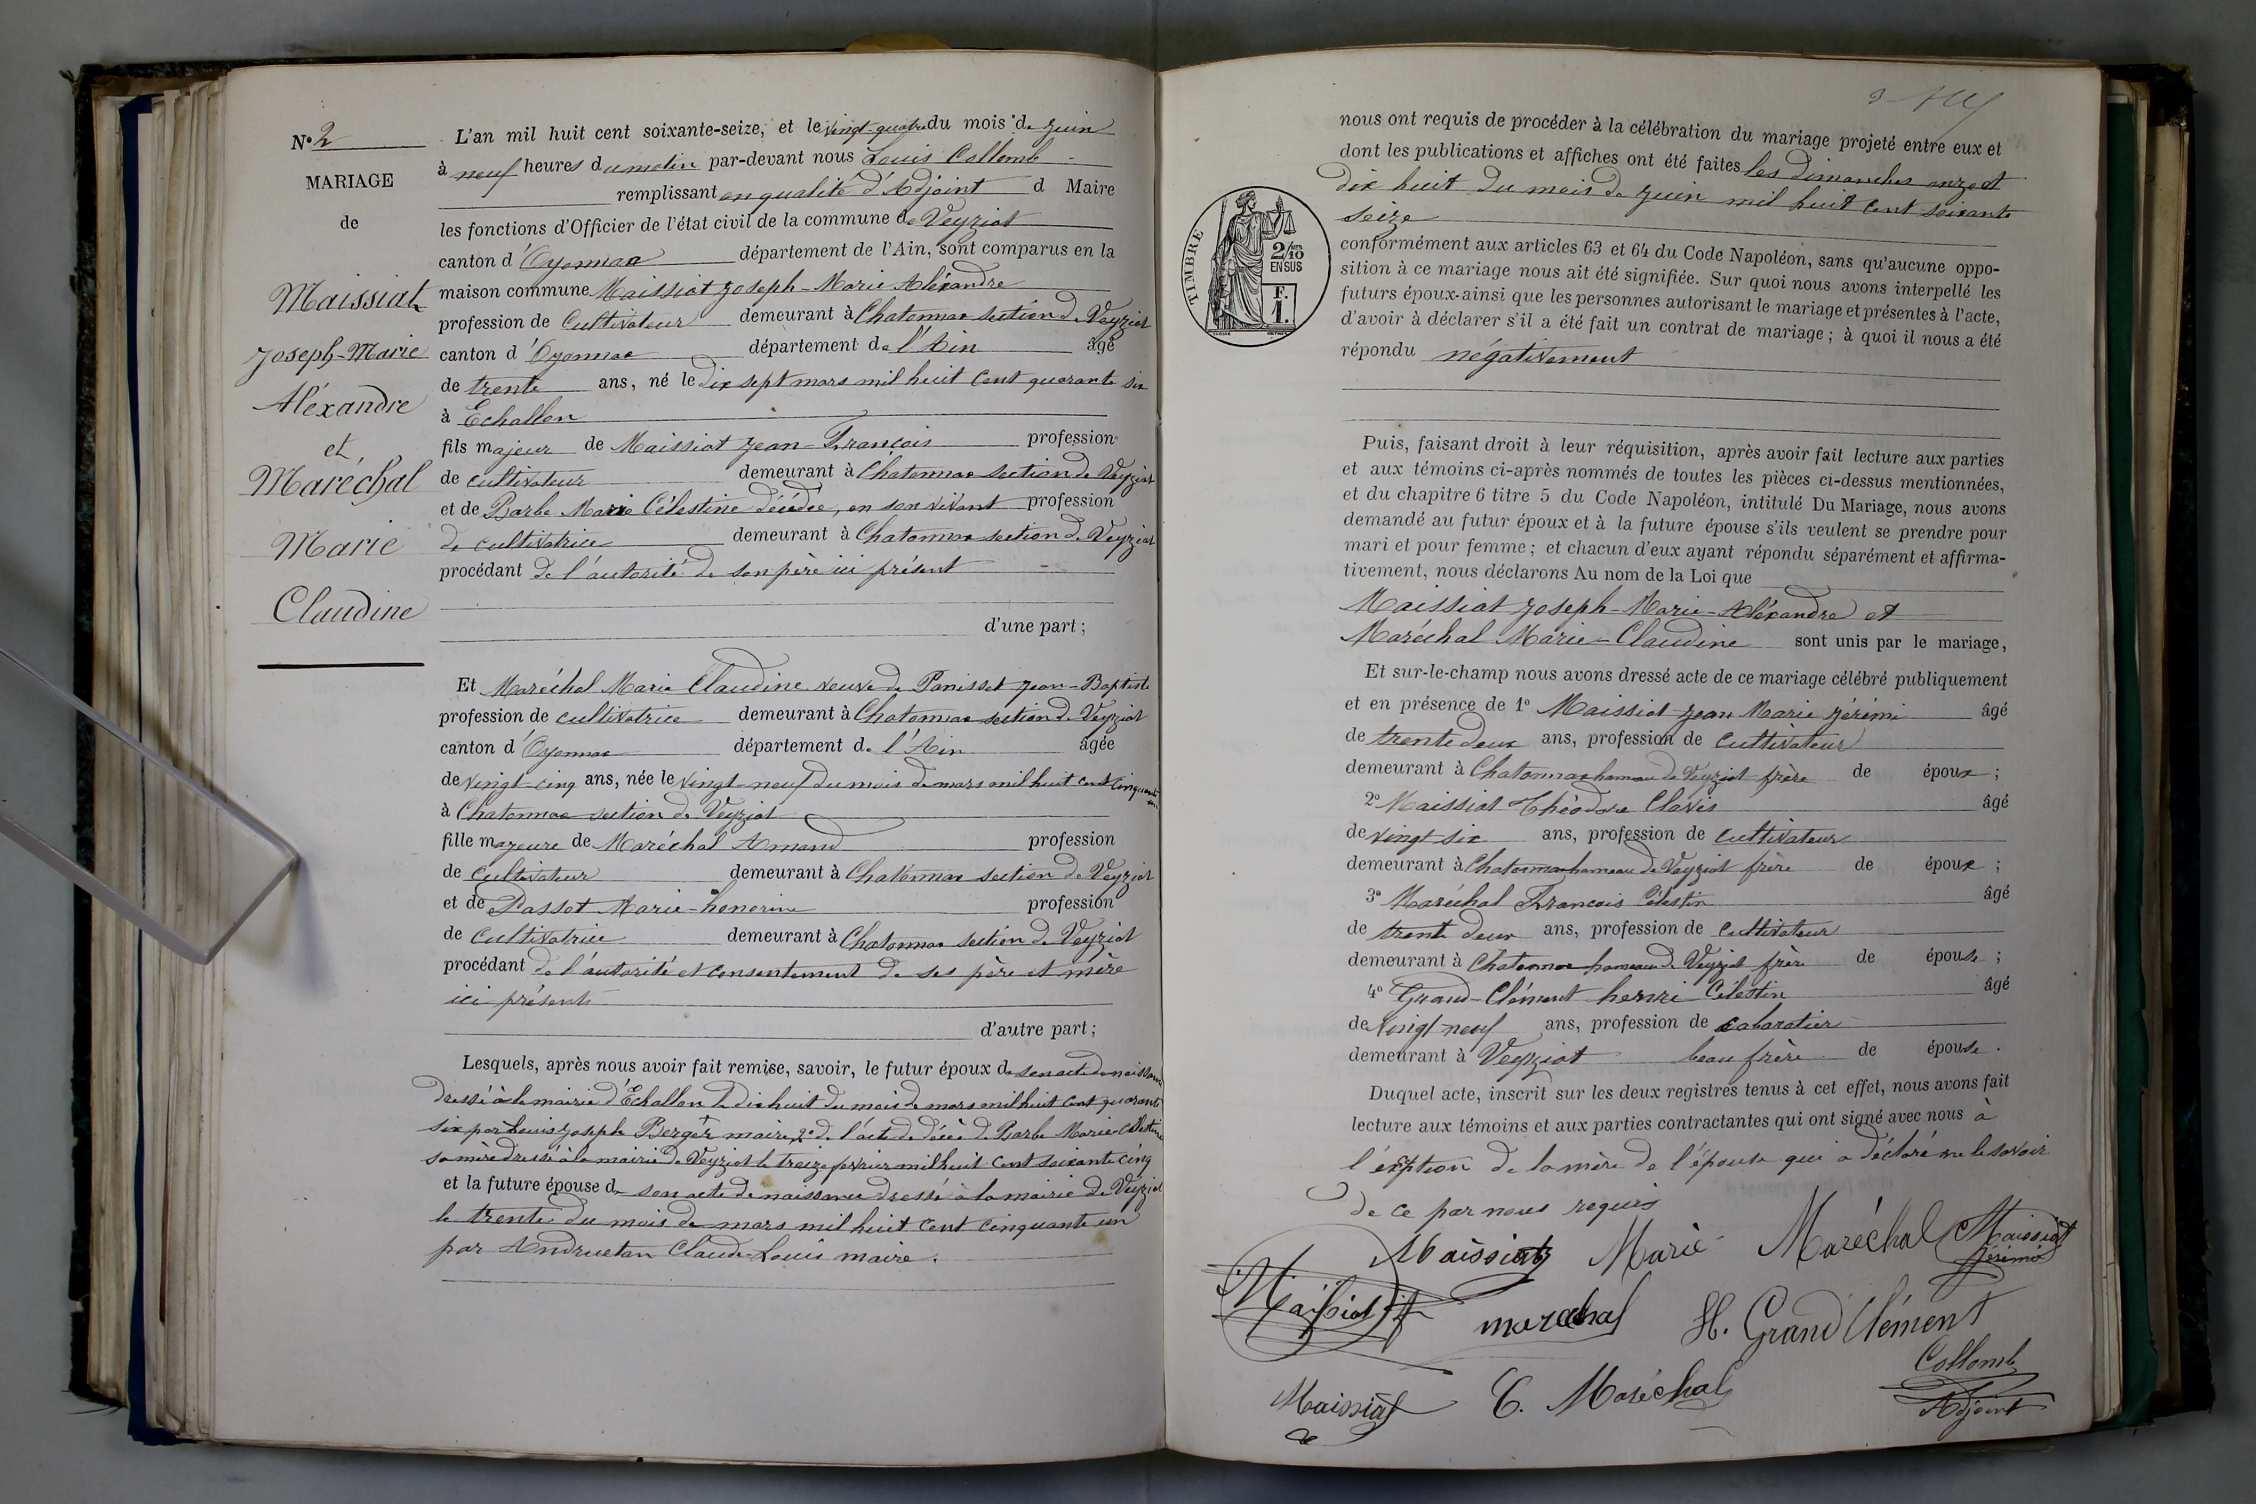 N° 2
MARIAGE
de
Maissiat
Joseph-Marie
Aléxandre
et
Maréchal
Marie
Claudine
L'an mil huit cent soixante-seize, et le vingt-quatre du mois de juin
à neuf heures du matin par-devant nous Louis Collomb
remplissant en qualité d'Adjoint d Maire
les fonctions d'Officier de l'état civil de la commune de Veyziat
canton d'Oyonnax département de l'Ain, sont comparus en la
maison commune Maissiat Joseph-Marie Aléxandre
profession de Cultivateur demeurant à Chatonnax section de Veyziat
canton d'Oyonnax département de l'Ain âgé
de trente ans, né le dix sept mars mil huit cent quarante six
à Echallon
fils majeur de Maissiat Jean-François profession
de cultivateur demeurant à Chatonnax section de Veyziat
et de Barbe Marie Célestine décédée, en son vivant profession
de cultivatrice demeurant à Chatonnax section de Veyziat
procédant de l'autorité de son père ici présent
d'une part;
Et Maréchal Marie Claudine veuve de Panisset Jean-Baptiste
profession de cultivatrice demeurant à Chatonnax section de Veyziat
canton d'Oyonnax département de l'Ain âgée
de vingt-cinq ans, née le vingt-neuf du mois de mars mil huit cent cinquante un
à Chatonnax section de Veyziat
fille majeure de Maréchal Amand profession
de cultivateur demeurant à Chatonnax section de Veyziat
et de Passot Marie-honorine profession
de cultivatrice demeurant à Chatonnax section de Veyziat
procédant de l'autorité et consentement de ses père et mère
ici présents
d'autre part;
Lesquels, après nous avoir fait remise, savoir, le futur époux de son acte de naissance
dressé à la mairie d'Échallon le dix huit du mois de mars mil huit cent quarante
six par Louis Joseph Berger maire, 2° de l'acte de décès de Barbe Marie Célestine
sa mère dressé à la mairie de Veyziat le treize février mil huit cent soixante cinq
et la future épouse de son acte de naissance dressé à la mairie de Veyziat
le trente du mois de mars mil huit cent cinquante un
par Andruetan Claude-Louis maire.
3
nous ont requis de procéder à la célébration du mariage projeté entre eux et
dont les publications et affiches ont été faites les dimanches onze et
dix huit du mois de juin mil huit cent soixante
seize
TIMBRE
2/10
EN SUS
F.
1.
conformément aux articles 63 et 64 du Code Napoléon, sans qu'aucune oppo-
sition à ce mariage nous ait été signifiée. Sur quoi nous avons interpellé les
futurs époux-ainsi que les personnes autorisant le mariage et présentes à l'acte,
d'avoir à déclarer s'il a été fait un contrat de mariage; à quoi il nous a été
répondu négativement
Puis, faisant droit à leur réquisition, après avoir fait lecture aux parties
et aux témoins ci-après nommés de toutes les pièces ci-dessus mentionnées,
et du chapitre 6 titre 5 du Code Napoléon, intitulé Du Mariage, nous avons
demandé au futur époux et à la future épouse s'ils veulent se prendre pour
mari et pour femme; et chacun d'eux ayant répondu séparément et affirma-
tivement, nous déclarons Au nom de la Loi que
Maissiat Joseph-Marie-Aléxandre et
Maréchal Marie-Claudine sont unis par le mariage,
Et sur-le-champ nous avons dressé acte de ce mariage célébré publiquement
et en présence de 1° Maissiat Jean Marie Jérémi âgé
de trente deux ans, profession de cultivateur
demeurant à Chatonnax hameau de Veyziat frère de époux;
2° Maissiat Théodore Clovis âgé
de vingt six ans, profession de cultivateur
demeurant à Chatonnax hameau de Veyziat frère de époux;
3° Maréchal François Célestin âgé
de trente deux ans, profession de cultivateur
demeurant à Chatonnax hameau de Veyziat frère de épouse;
4° Grand-Clément henri Célestin âgé
de vingt neuf ans, profession de cabaratier
demeurant à Veyziat beau frère de épouse.
Duquel acte, inscrit sur les deux registres tenus à cet effet, nous avons fait
lecture aux témoins et aux parties contractantes qui ont signé avec nous à
l'éxption de la mère de l'épouse qui a déclaré ne le savoir
de ce par nous requis
Maissiat Marie Maréchal Maissiat
Jérémie
Maissiat marechal H. Grand Clément
Collomb
Maissiat C. Maréchal Adjoint